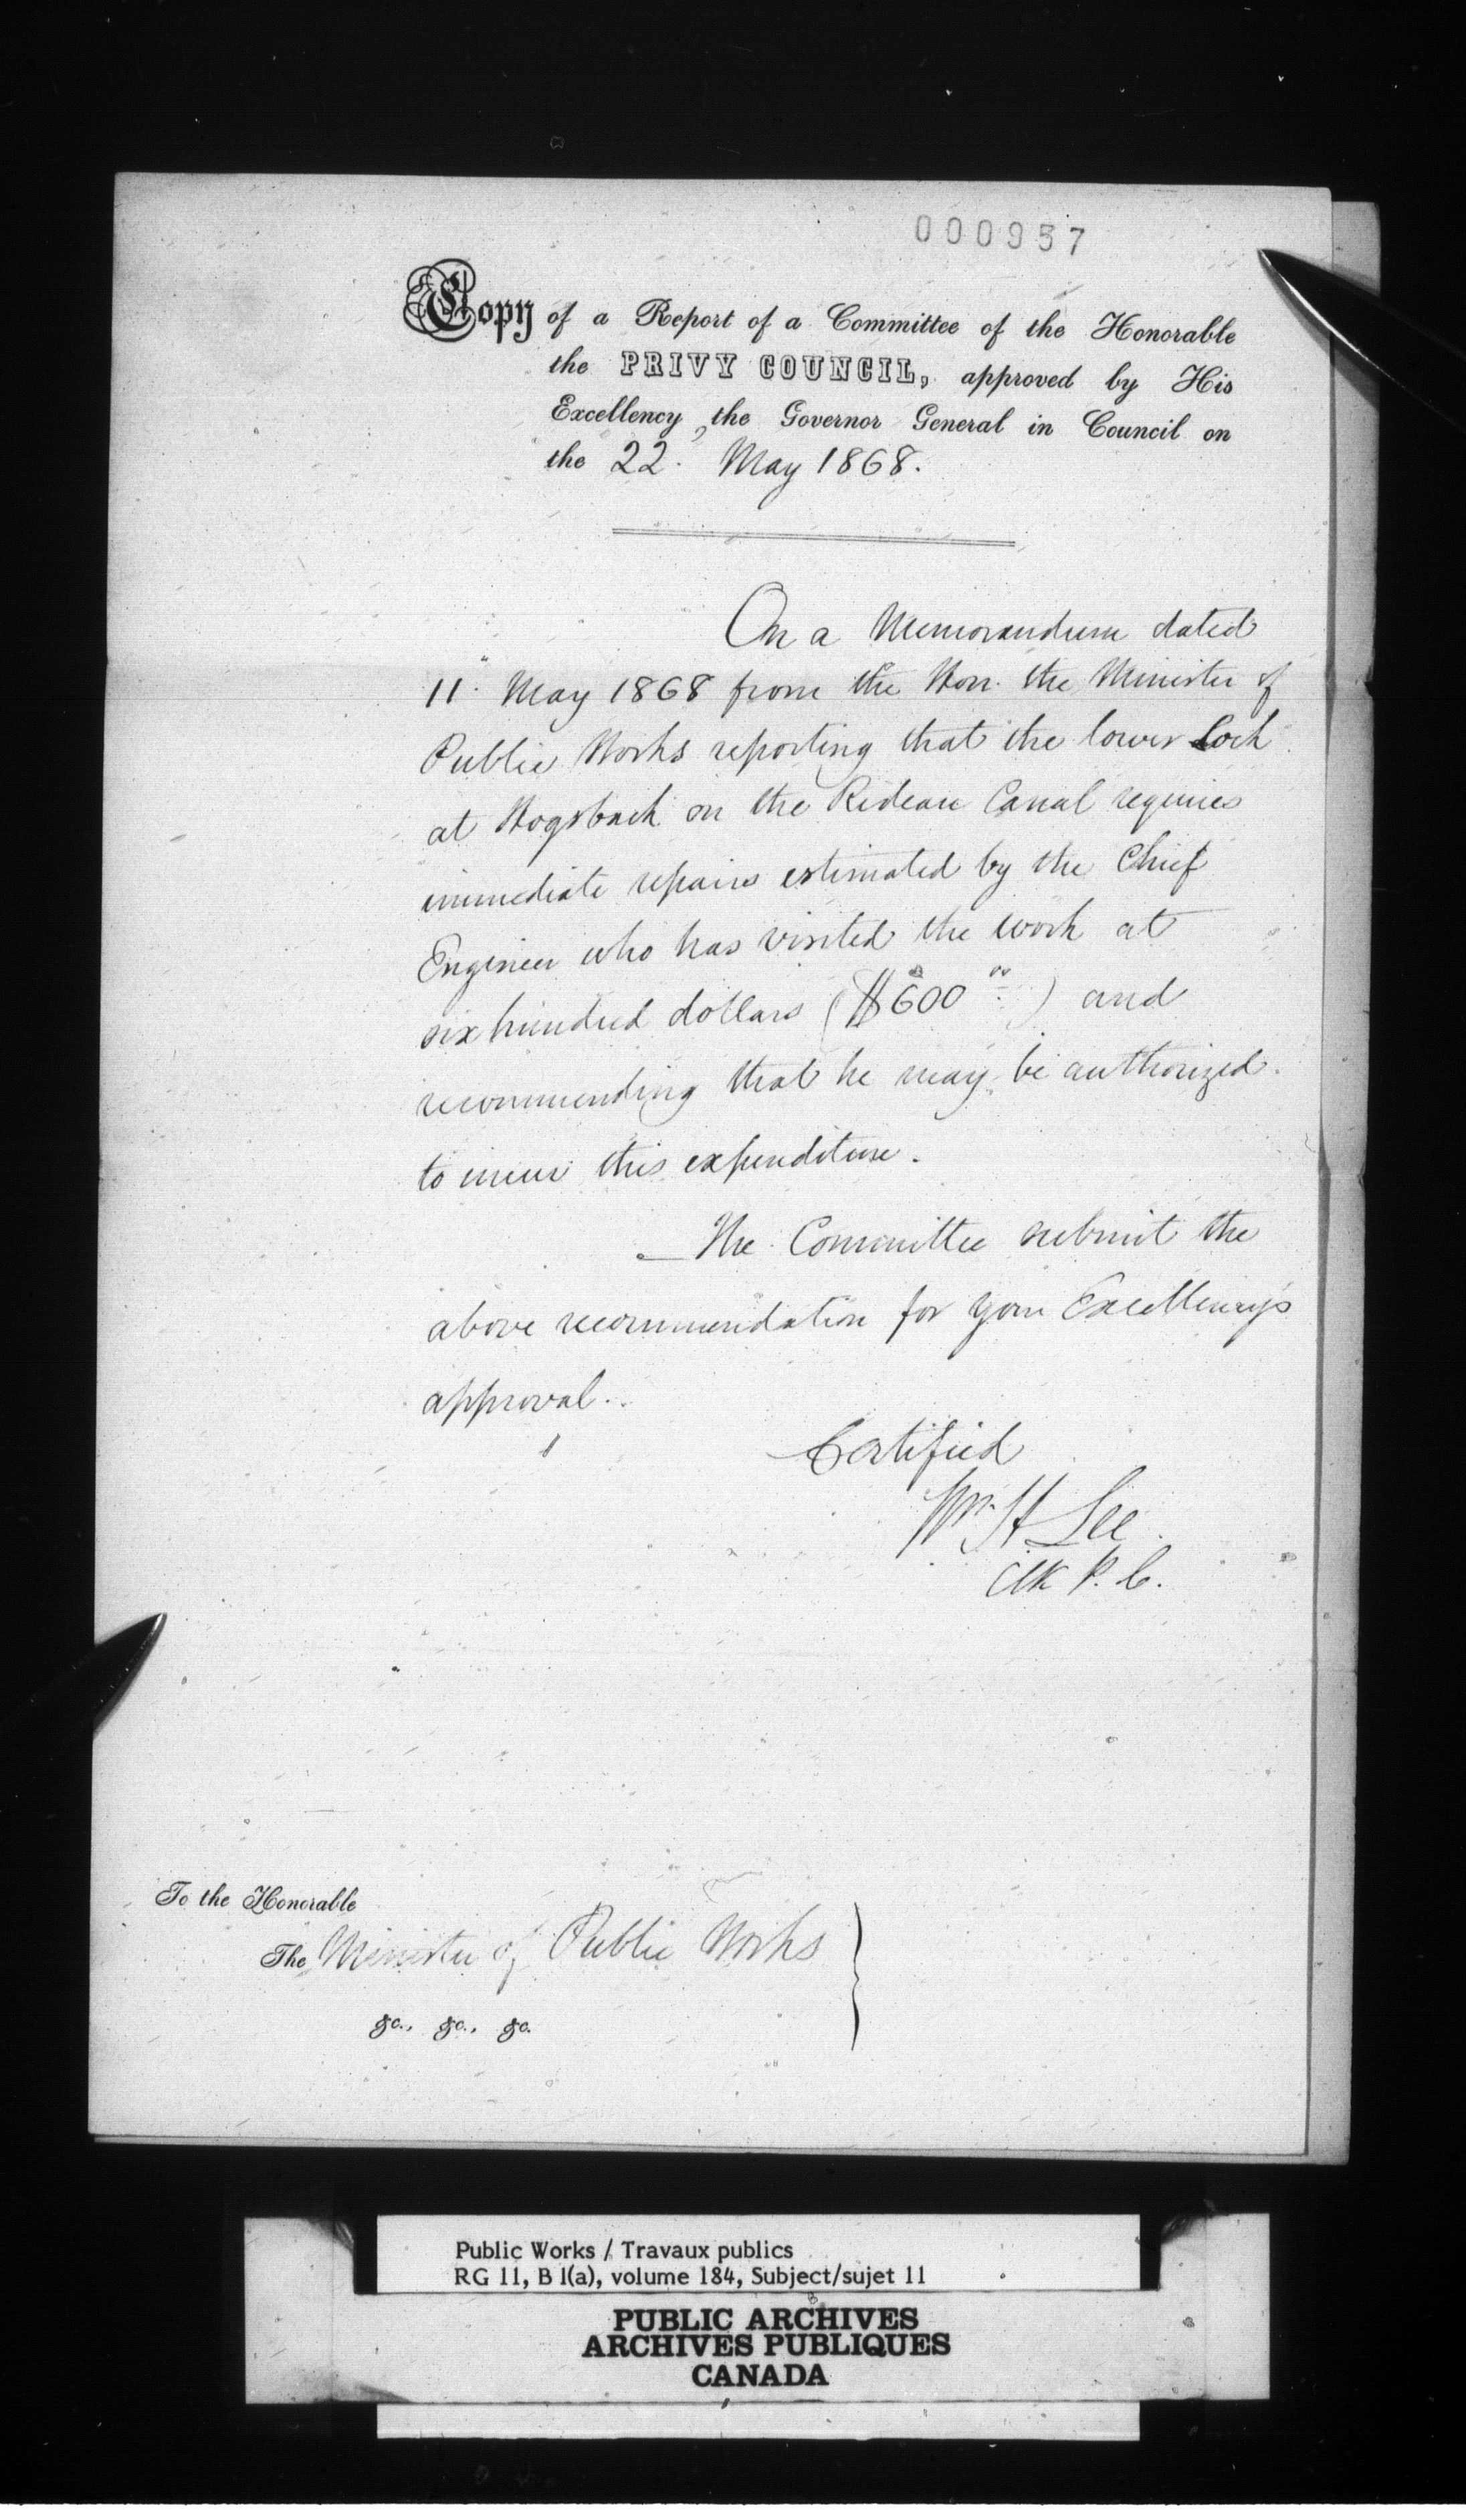 000957
Copy of a Report of a Committee of the Honorable
the PRIVY COUNCIL, approved by His
Excellency the Governor General in Council on
the 22. May 1868.
On a Memorandum dated
11" May 1868 from the Hon. the Minister of
Public Works reporting that the lower Lock
at Hogsback on the Rideau Canal requires
immediate repairs estimated by the Chief
Engineer who has visited the work at
six hundred dollars ($600 00) and
recommending that he may be authorized
to incur this expenditure.
The Committee submit the
above recommendation for Your Excellency's
approval.
Certified
Wm. H Lee
Clk P. C.
To the Honorable
The Minister of Public Works
&c., &c., &c.
Public Works / Travaux publics
RG 11, B 1(a), volume 184, Subject/sujet 11
PUBLIC ARCHIVES
ARCHIVES PUBLIQUES
CANADA